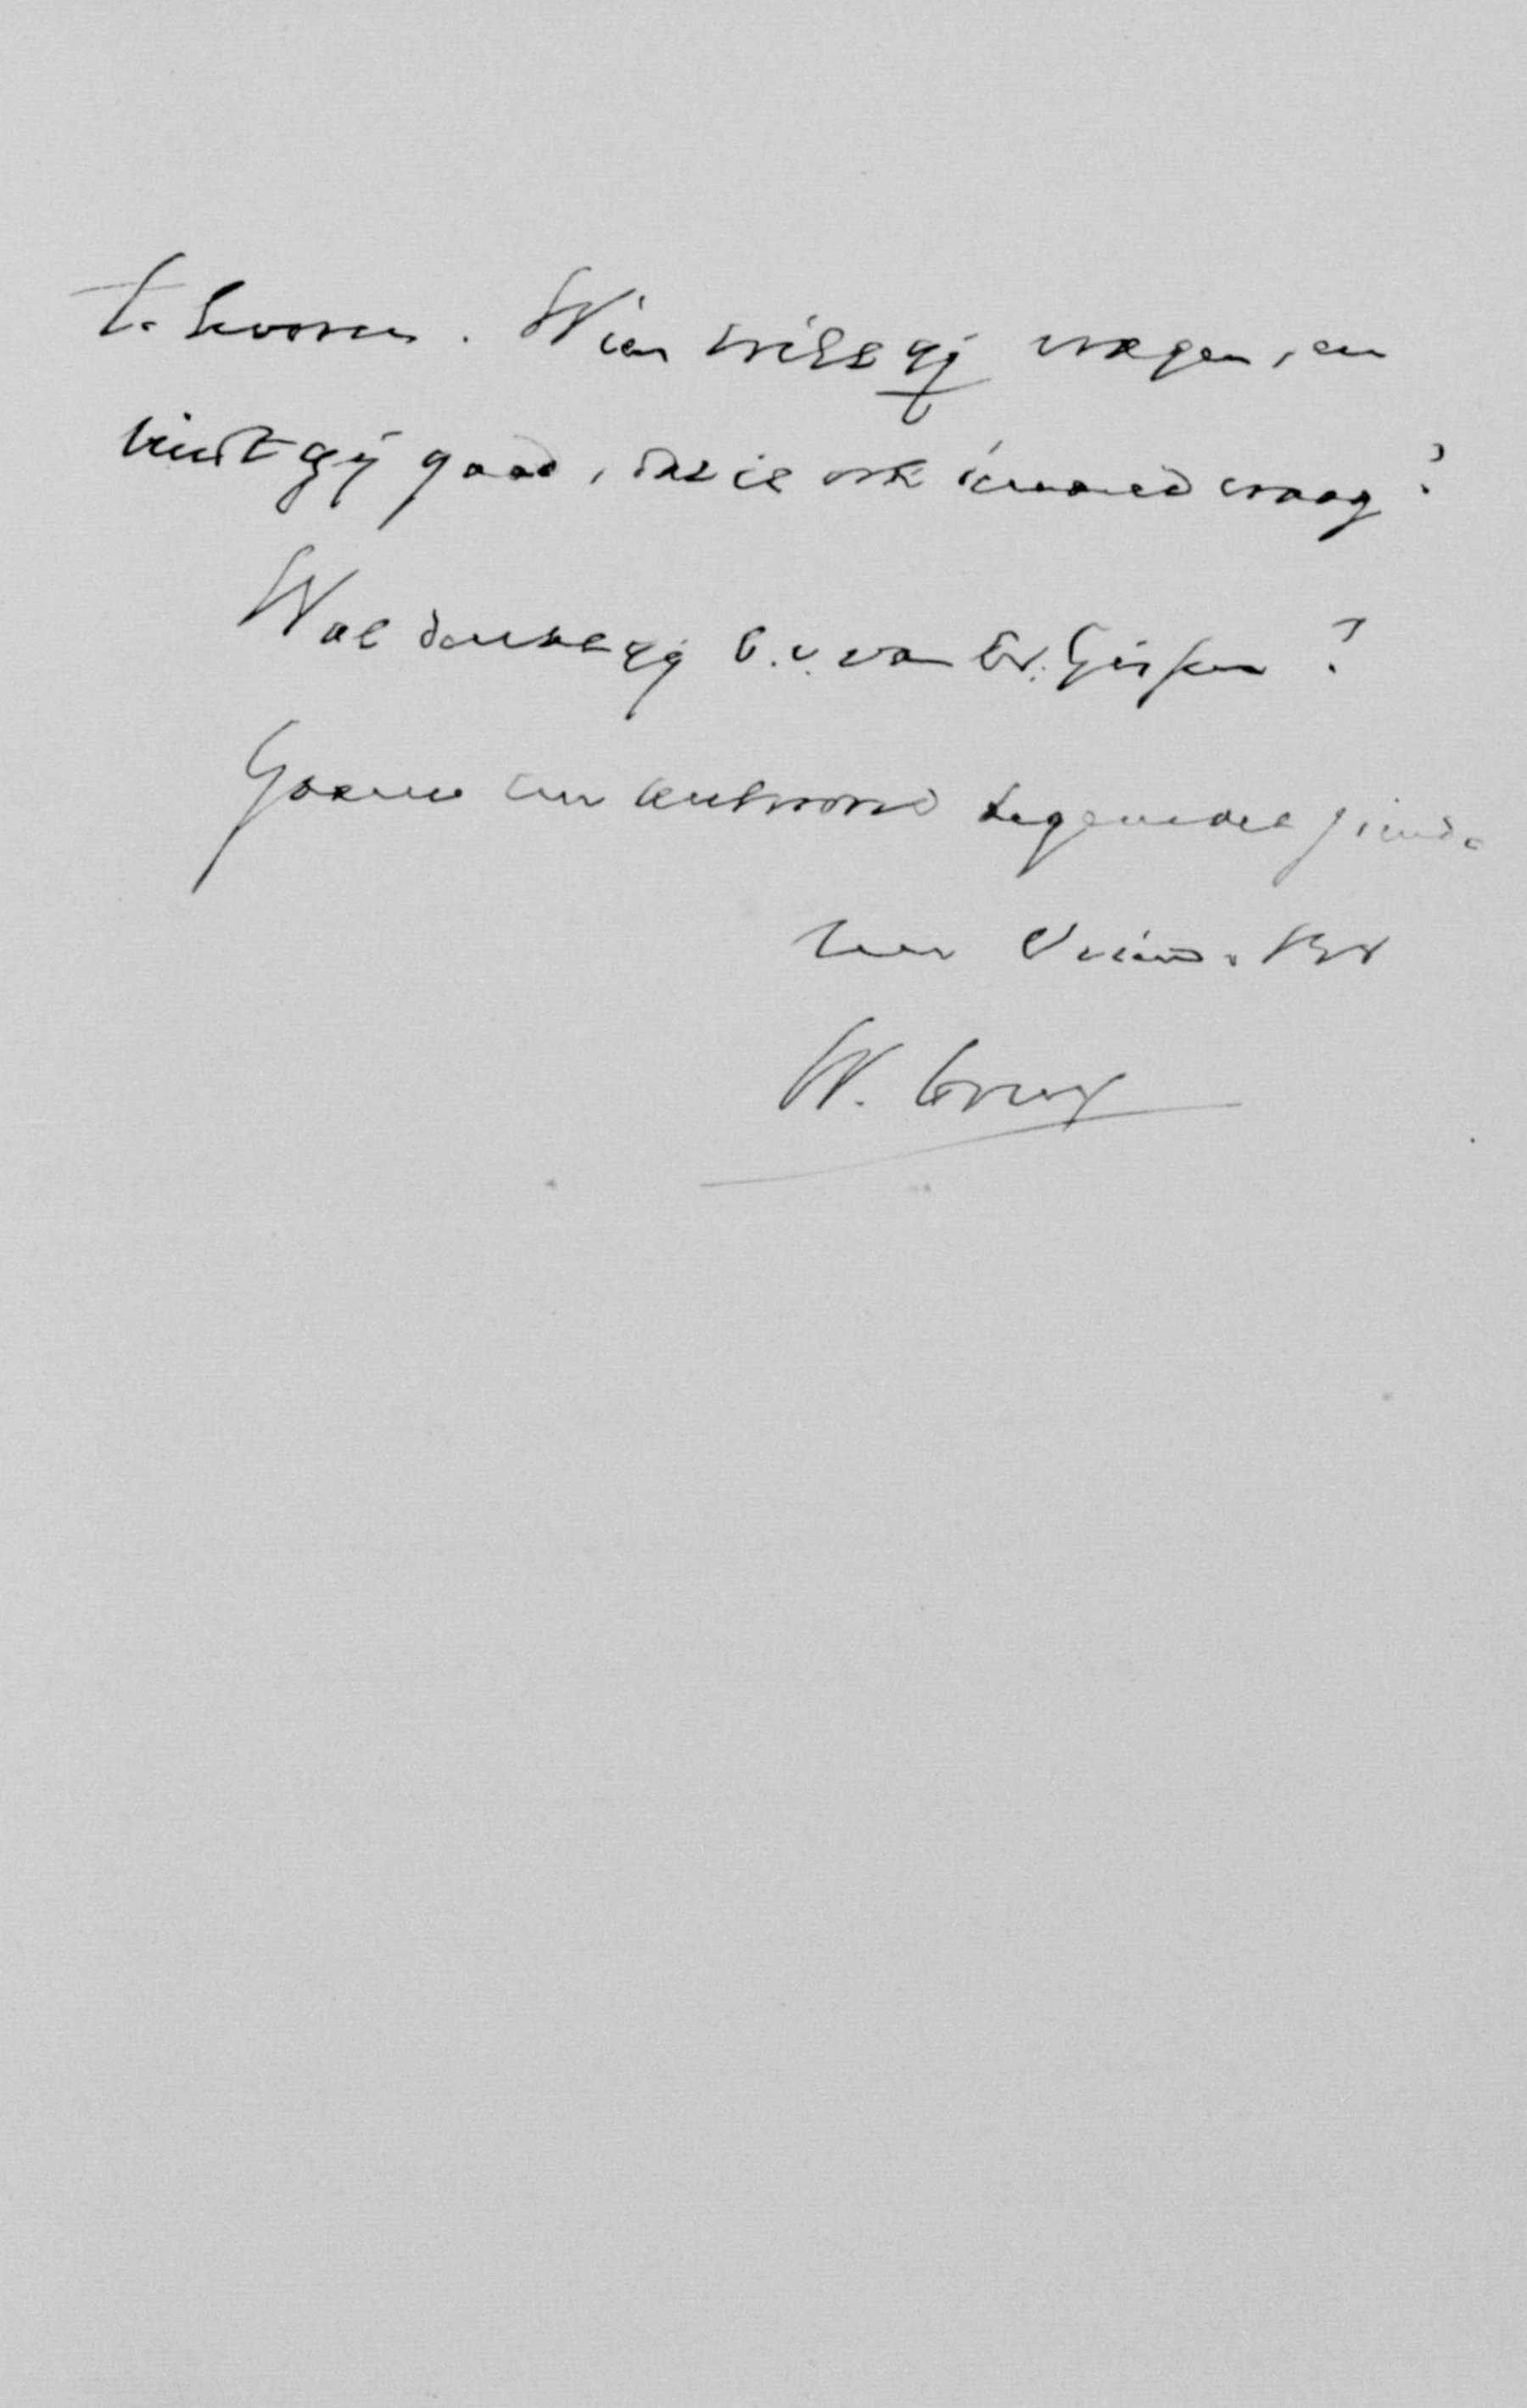 te hooren. Wien wilt gij vragen, en
vindt gij goed, dat ik ook iemand vraag?
Wat denkt gij b.v. van Dr. Gispen?
Gaarne uw antwoord tegemoet ziende
Uw Vriend. Br
W.